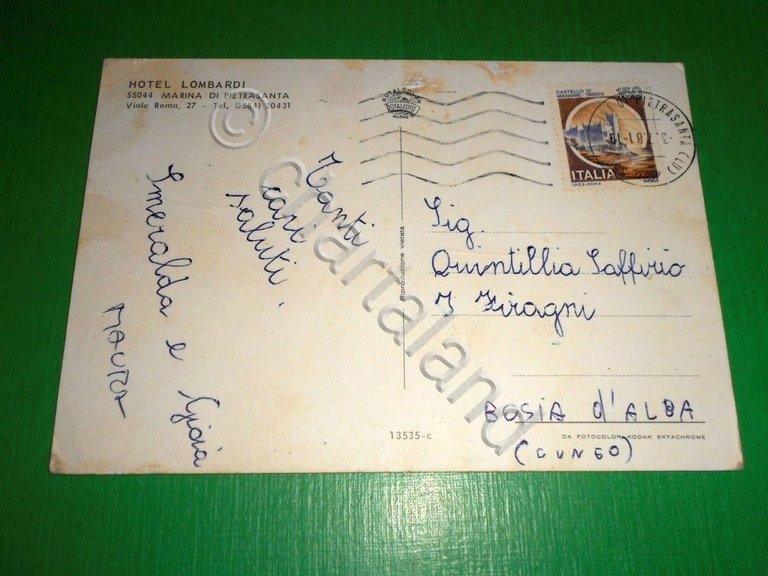 HOTEL LOMBARDI
55044 MARINA DI PIETRASANTA
Viale Roma, 27 - Tel. (0584) 20431
Tanti
cari
saluti.
Smeralda e Gioia
MAURA
ROTALCOLOR
ROTALFOTO
MILANO
Riproduzione vietata
13535-c
CASTELLO DI
MIRAMARE - TRIESTE
150
ITALIA
I.P.Z.S. - ROMA
PIETRASANTA (LU)
Sig.
Quintillia Saffirio
BOSIA d'ALBA
(CUNEO)
DA FOTOCOLOR KODAK EKTACHROME
© chartaland